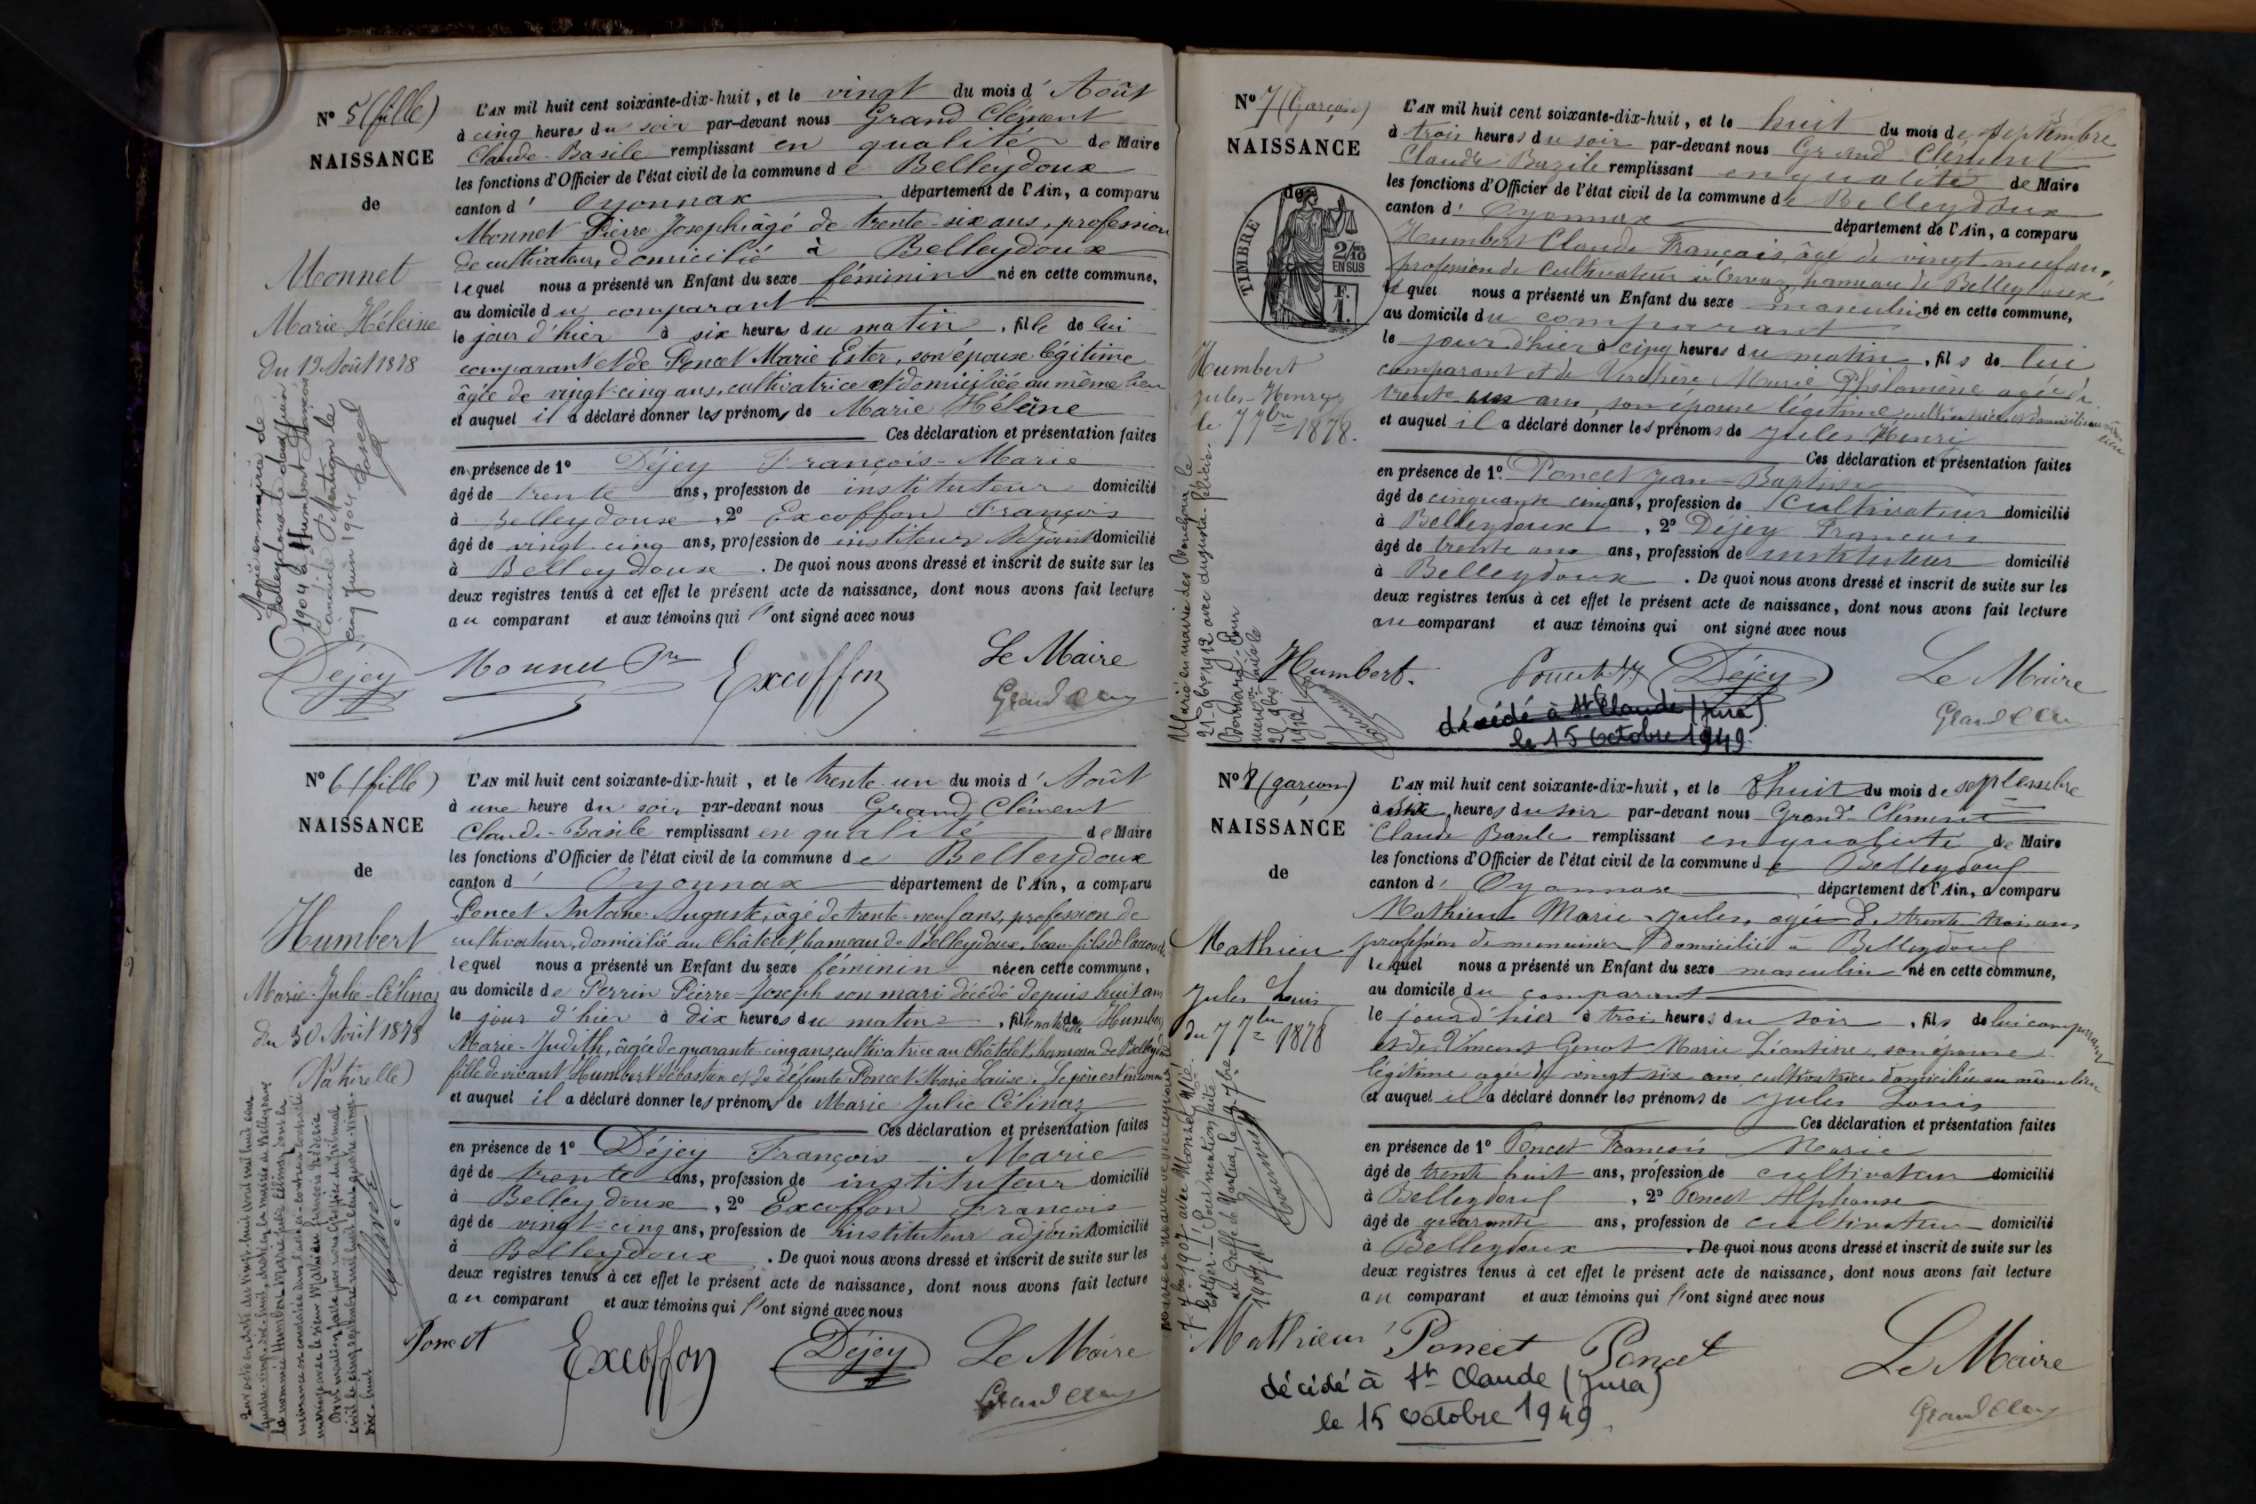 N° 5 (fille)
NAISSANCE
de
Monnet
Marie Héleine
du 19 Août 1878
Marié en mairie de
Belleydoux le
1904 à Humbert François
cinq Juin 1904
L'AN mil huit cent soixante-dix-huit, et le vingt du mois d' Août
à cinq heures du soir par-devant nous Grand Clément
Claude-Basile remplissant en qualité de Maire
les fonctions d'Officier de l'état civil de la commune de Belleydoux
canton d' Oyonnax département de l'Ain, a comparu
Monnet Pierre Joseph âgé de trente-six ans, profession
de cultivateur, domicilié à Belleydoux
lequel nous a présenté un Enfant du sexe féminin né en cette commune,
au domicile du comparant
le jour d'hier à six heures du matin, fille de lui
comparant et de Poncet Marie Ester, son épouse légitime
âgée de vingt-cinq ans, cultivatrice et domiciliée au même lieu
et auquel il a déclaré donner les prénoms de Marie Héleine
Ces déclaration et présentation faites
en présence de 1° Déjey François-Marie
âgé de trente ans, profession de instituteur domicilié
à Belleydoux, 2° Excoffon François
âgé de vingt-cinq ans, profession de instituteur Adjoint domicilié
à Belleydoux. De quoi nous avons dressé et inscrit de suite sur les
deux registres tenus à cet effet le présent acte de naissance, dont nous avons fait lecture
au comparant et aux témoins qui l'ont signé avec nous
Déjey Monnet Pre Excoffon Le Maire
Grand Clém
N° 6 (fille)
NAISSANCE
de
Humbert
Marie-Julie-Célinaz
du 30 Août 1878
(Naturelle)
L'AN mil huit cent soixante-dix-huit, et le trente-un du mois d' Août
à une heure du soir par-devant nous Grand Clément
Claude-Basile remplissant en qualité de Maire
les fonctions d'Officier de l'état civil de la commune de Belleydoux
canton d' Oyonnax département de l'Ain, a comparu
Poncet Antoine Auguste, âgé de trente-neuf ans, profession de
cultivateur, domicilié au Châtelet, hameau de Belleydoux, beau-fils de l'accouchée
lequel nous a présenté un Enfant du sexe féminin née en cette commune,
au domicile de Perrin Pierre-Joseph son mari décédé depuis huit ans
le jour d'hier à dix heures du matin, fille naturelle de Humbert
Marie-Judith, âgée de quarante-cinq ans, cultivatrice au Châtelet, hameau de Belleydoux
fille de vivant Humbert Sébastien et de défunte Poncet Marie Louise. Le père est inconnu
et auquel il a déclaré donner les prénoms de Marie Julie Célinaz
Ces déclaration et présentation faites
en présence de 1° Déjey François Marie
âgé de trente ans, profession de instituteur domicilié
à Belleydoux, 2° Excoffon François
âgé de vingt-cinq ans, profession de instituteur adjoint domicilié
à Belleydoux. De quoi nous avons dressé et inscrit de suite sur les
deux registres tenus à cet effet le présent acte de naissance, dont nous avons fait lecture
au comparant et aux témoins qui l'ont signé avec nous
Poncet Excoffon Déjey Le Maire
Grand Clém
N° 7 (Garçon)
NAISSANCE
de
TIMBRE
2/10
EN SUS
F.
1.
Humbert
Jules-Henry
le 7 7bre 1878.
Marié en mairie des Bouchoux le
21-9bre 1912 avec Augusta
L'AN mil huit cent soixante-dix-huit, et le huit du mois de Septembre
à trois heures du soir par-devant nous Grand Clément
Claude Bazile remplissant en qualité de Maire
les fonctions d'Officier de l'état civil de la commune de Belleydoux
canton d' Oyonnax département de l'Ain, a comparu
Humbert Claude François âgé de vingt neuf ans,
profession de cultivateur à Orvaz, hameau de Belleydoux
lequel nous a présenté un Enfant du sexe masculin né en cette commune,
au domicile du comparant
le jour d'hier à cinq heures du matin, fils de lui
comparant et de Verchère Marie Philomène agée de
trente un ans, son épouse légitime cultivatrice et domiciliée au même lieu
et auquel il a déclaré donner les prénoms de Jules Henri
Ces déclaration et présentation faites
en présence de 1°. Poncet Jean-Baptiste
âgé de cinquante cinq ans, profession de Cultivateur domicilié
à Belleydoux, 2° Déjey François
âgé de trente ans ans, profession de instituteur domicilié
à Belleydoux. De quoi nous avons dressé et inscrit de suite sur les
deux registres tenus à cet effet le présent acte de naissance, dont nous avons fait lecture
au comparant et aux témoins qui ont signé avec nous
Humbert. Poncet Déjey Le Maire
Grand Clém
décédé à St Claude (Jura)
le 15 Octobre 1949.
N° 8 (garçon)
NAISSANCE
de
Mathieu
Jules Louis
du 7 7bre 1878
L'AN mil huit cent soixante-dix-huit, et le huit du mois de septembre
à six heures du soir par-devant nous Grand-Clément
Claude Basile remplissant en qualité de Maire
les fonctions d'Officier de l'état civil de la commune de Belleydoux
canton d' Oyonnax département de l'Ain, a comparu
Mathieu Marie-Jules, agée de trente trois ans
profession de menuisier domicilié à Belleydoux
lequel nous a présenté un Enfant du sexe masculin né en cette commune,
au domicile du comparant
le jour d'hier à trois heures du soir, fils de lui comparant
et de Vincent Genot Marie Léontine, son épouse
légitime agée de vingt six ans cultivatrice domiciliée au même lieu
et auquel il a déclaré donner les prénoms de Jules Louis
Ces déclaration et présentation faites
en présence de 1° Poncet François Marie
âgé de trente huit ans, profession de cultivateur domicilié
à Belleydoux, 2° Poncet Alphonse
âgé de quarante ans, profession de cultivateur domicilié
à Belleydoux. De quoi nous avons dressé et inscrit de suite sur les
deux registres tenus à cet effet le présent acte de naissance, dont nous avons fait lecture
au comparant et aux témoins qui l'ont signé avec nous
Mathieu Poncet Poncet Le Maire
Grand Clém
décédé à St Claude (Jura)
le 15 octobre 1949.